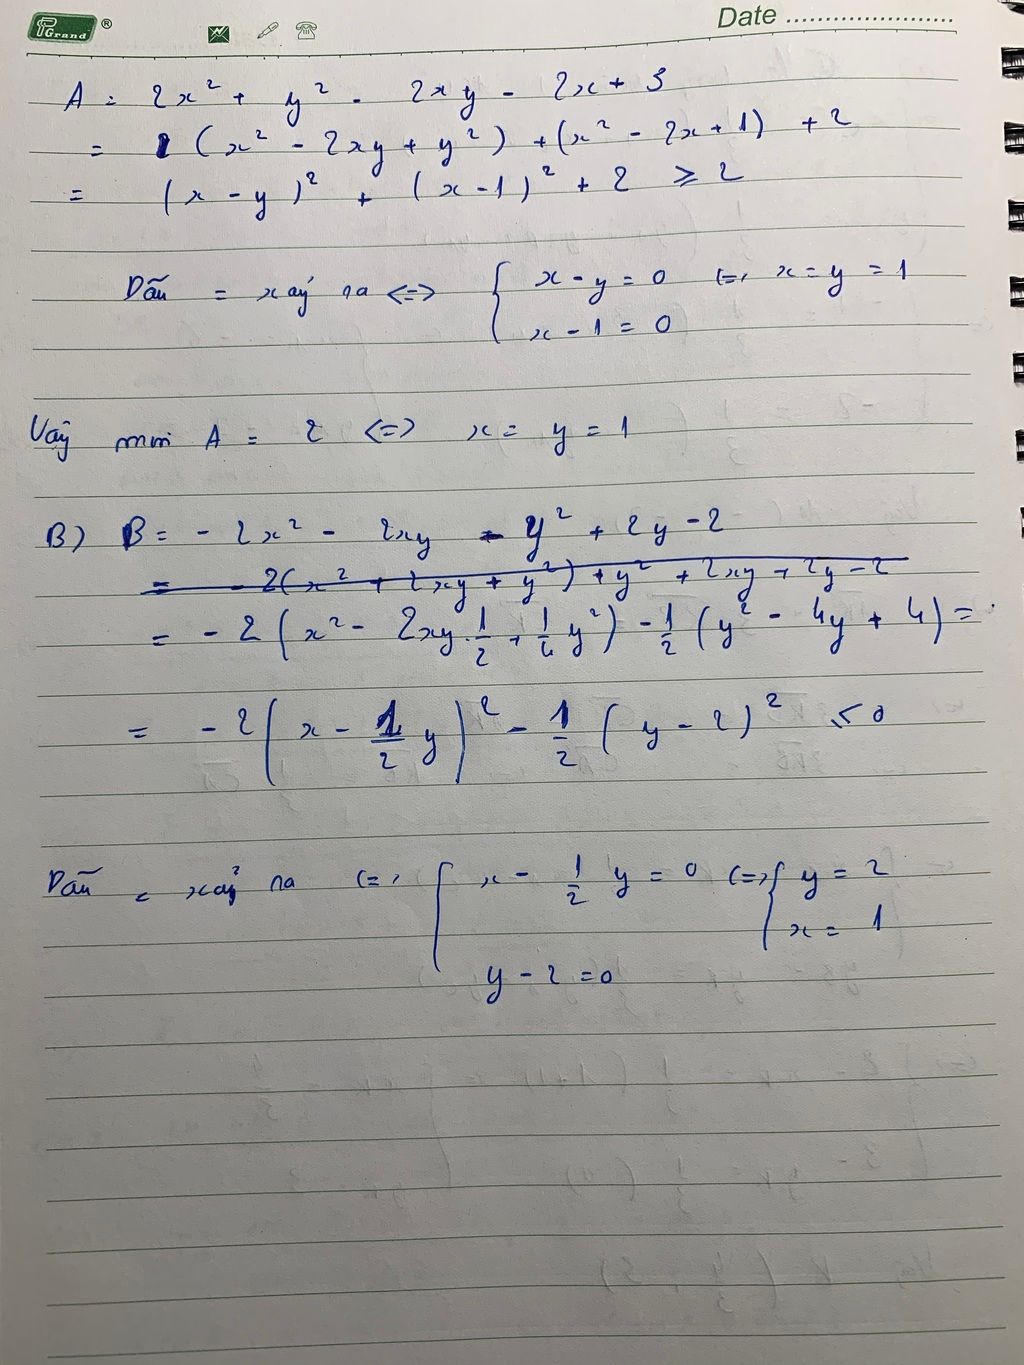 PGrand ® Date ........................
A = 2x² + y² - 2xy - 2x + 3
= (x² - 2xy + y²) + (x² - 2x + 1) + 2
= (x - y)² + (x - 1)² + 2 ≥ 2
Dấu = xảy ra <=> { x - y = 0 <=> x = y = 1
x - 1 = 0
Vậy min A = 2 <=> x = y = 1
B) B = - 2x² - 2xy - y² + 2y - 2
= - 2(x² + 2xy + y²) + y² + 2xy + 2y - 2
= - 2 (x² - 2xy . 1/2 + 1/4 y²) - 1/2 (y² - 4y + 4) =
= - 2 (x - 1/2 y)² - 1/2 (y - 2)² ≤ 0
Dấu = xảy ra <=> { x - 1/2 y = 0 <=> { y = 2
x = 1
y - 2 = 0